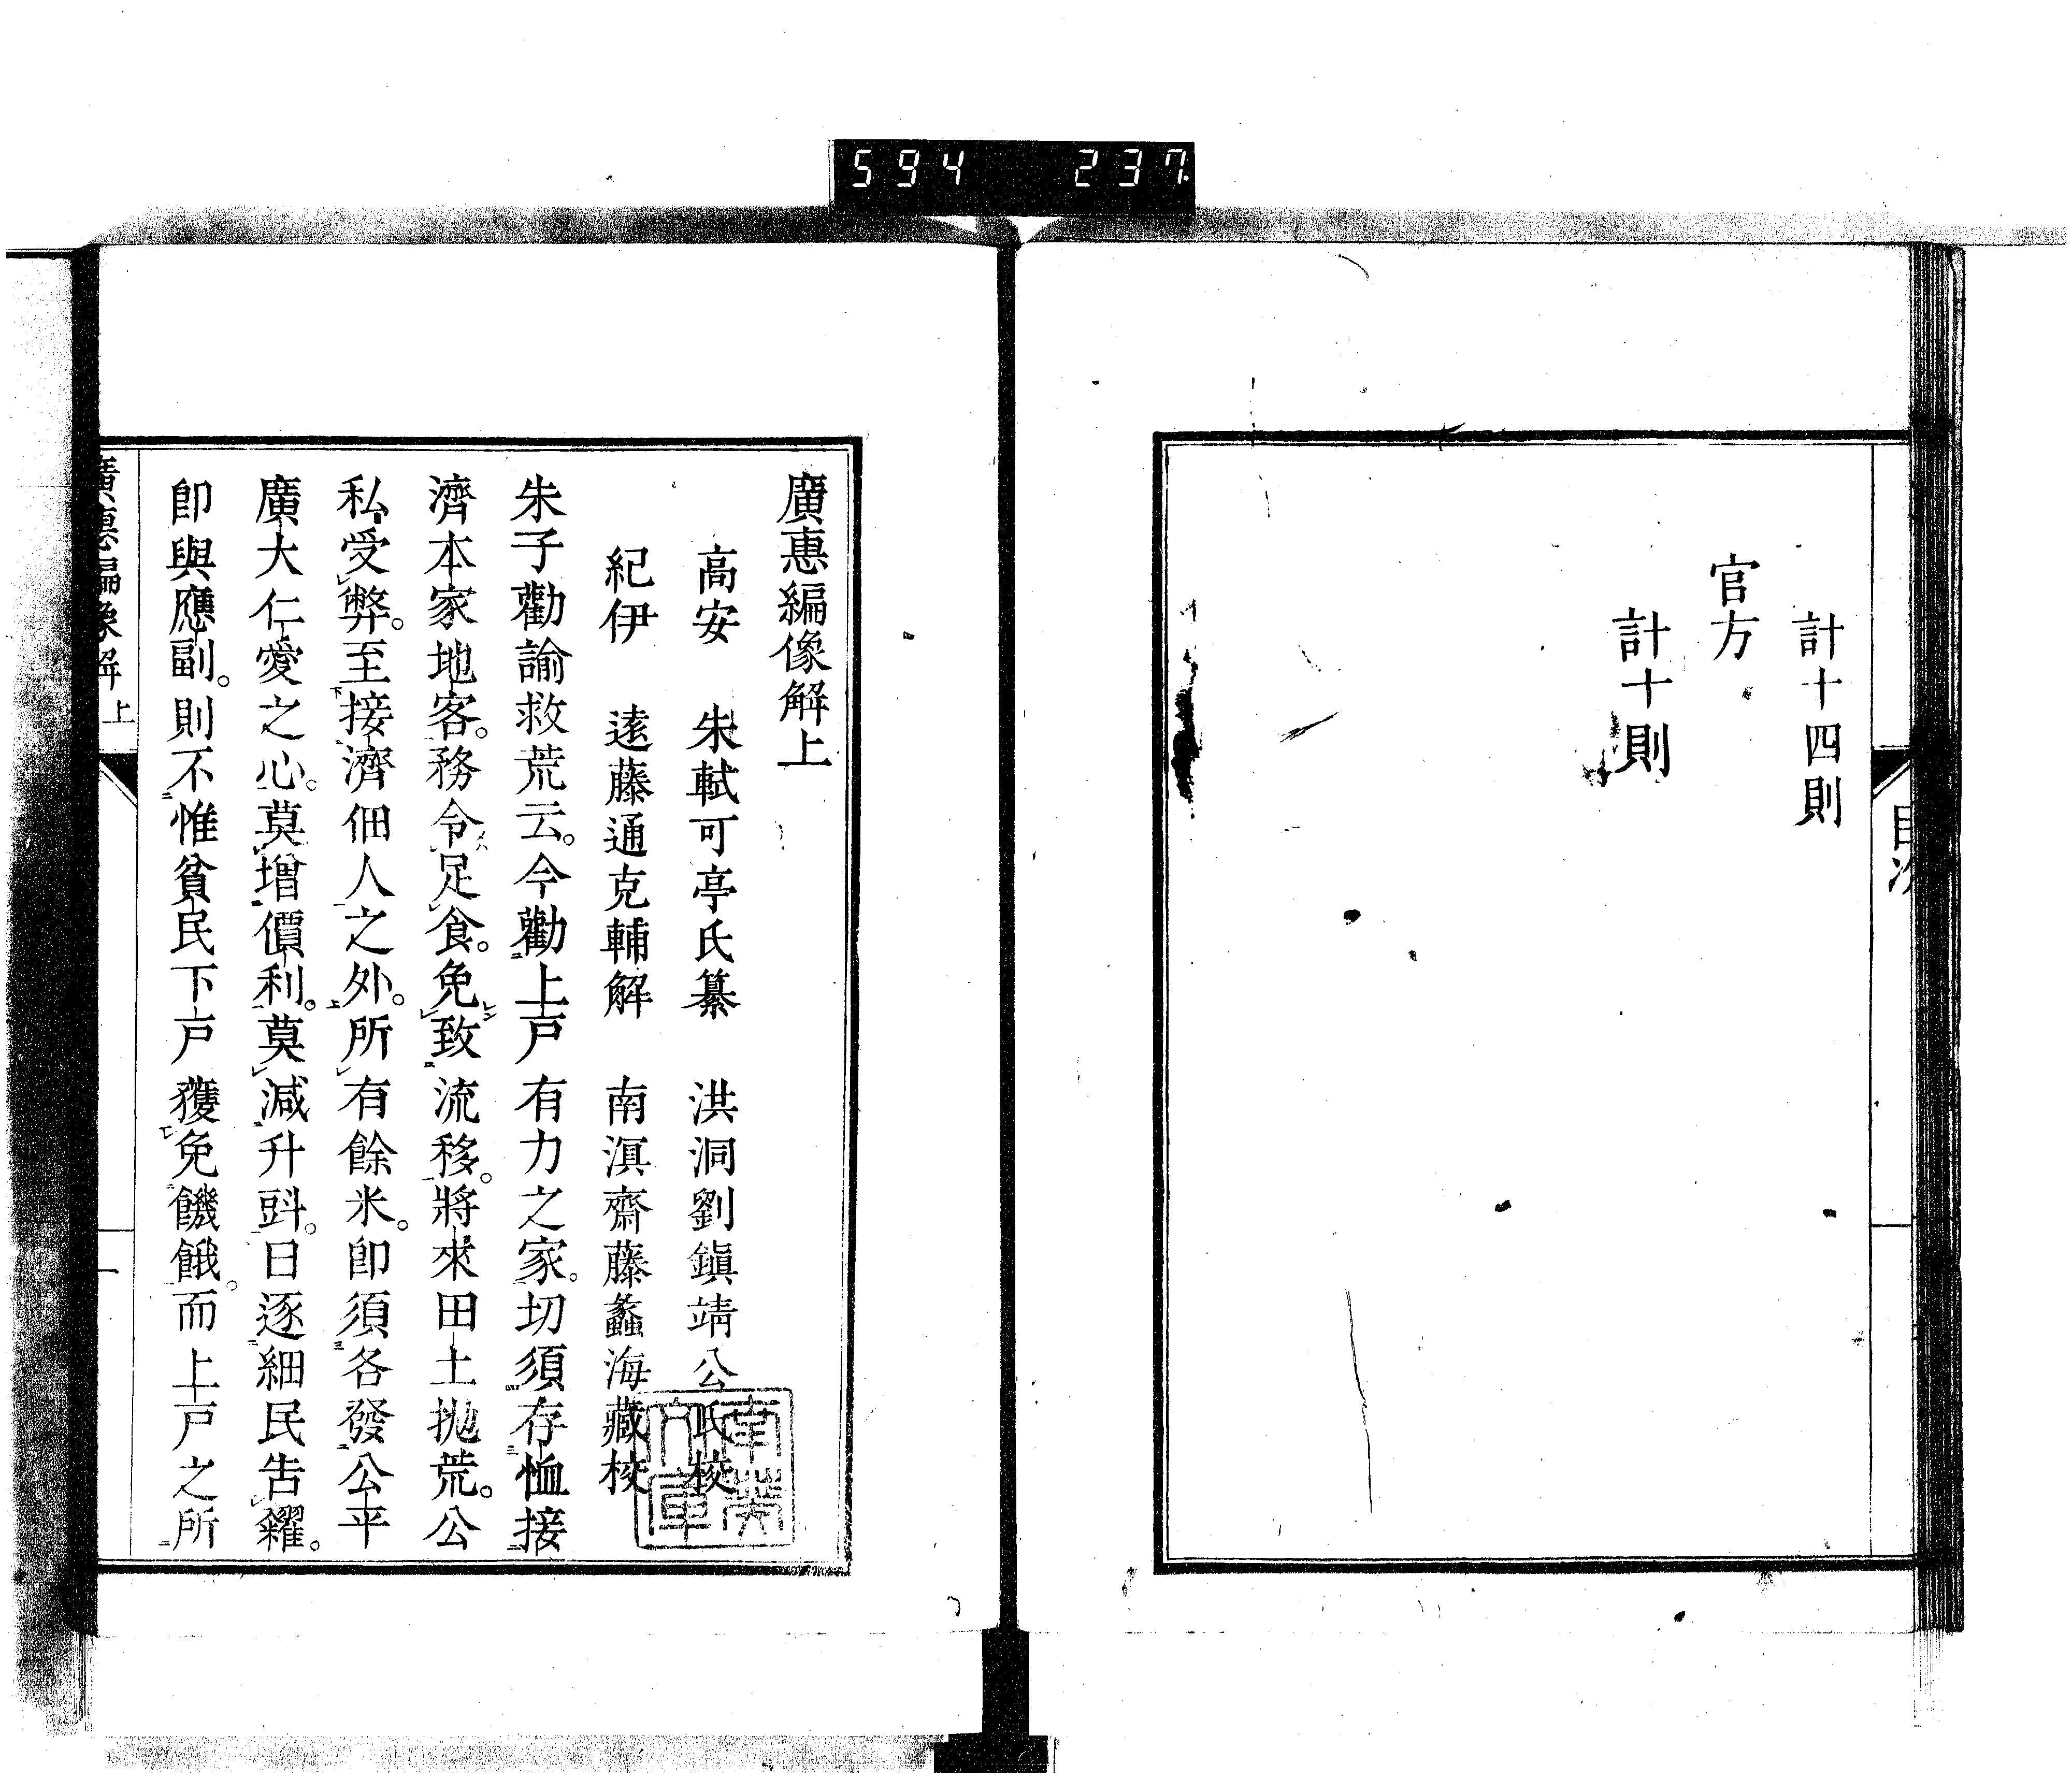 594 237
計十四則
官方
計十則
目次
廣惠編像解上
高安　朱軾可亭氏纂　洪洞劉鎭靖公氏校
紀伊　遠藤通克輔解　南溟齋藤蠡海藏校
朱子勸諭救荒云。今勸上戸有力之家。切須存恤接
濟本家地客。務令足食。免致流移。將來田土抛荒。公
私受弊。至接濟佃人之外。所有餘米。卽須各發公平
廣大仁愛之心。莫增價利。莫減升㪷。日逐細民告糴。
卽與應副。則不惟貧民下戸獲免饑餓。而上戸之所
廣惠編像解 上 一
南葵文庫